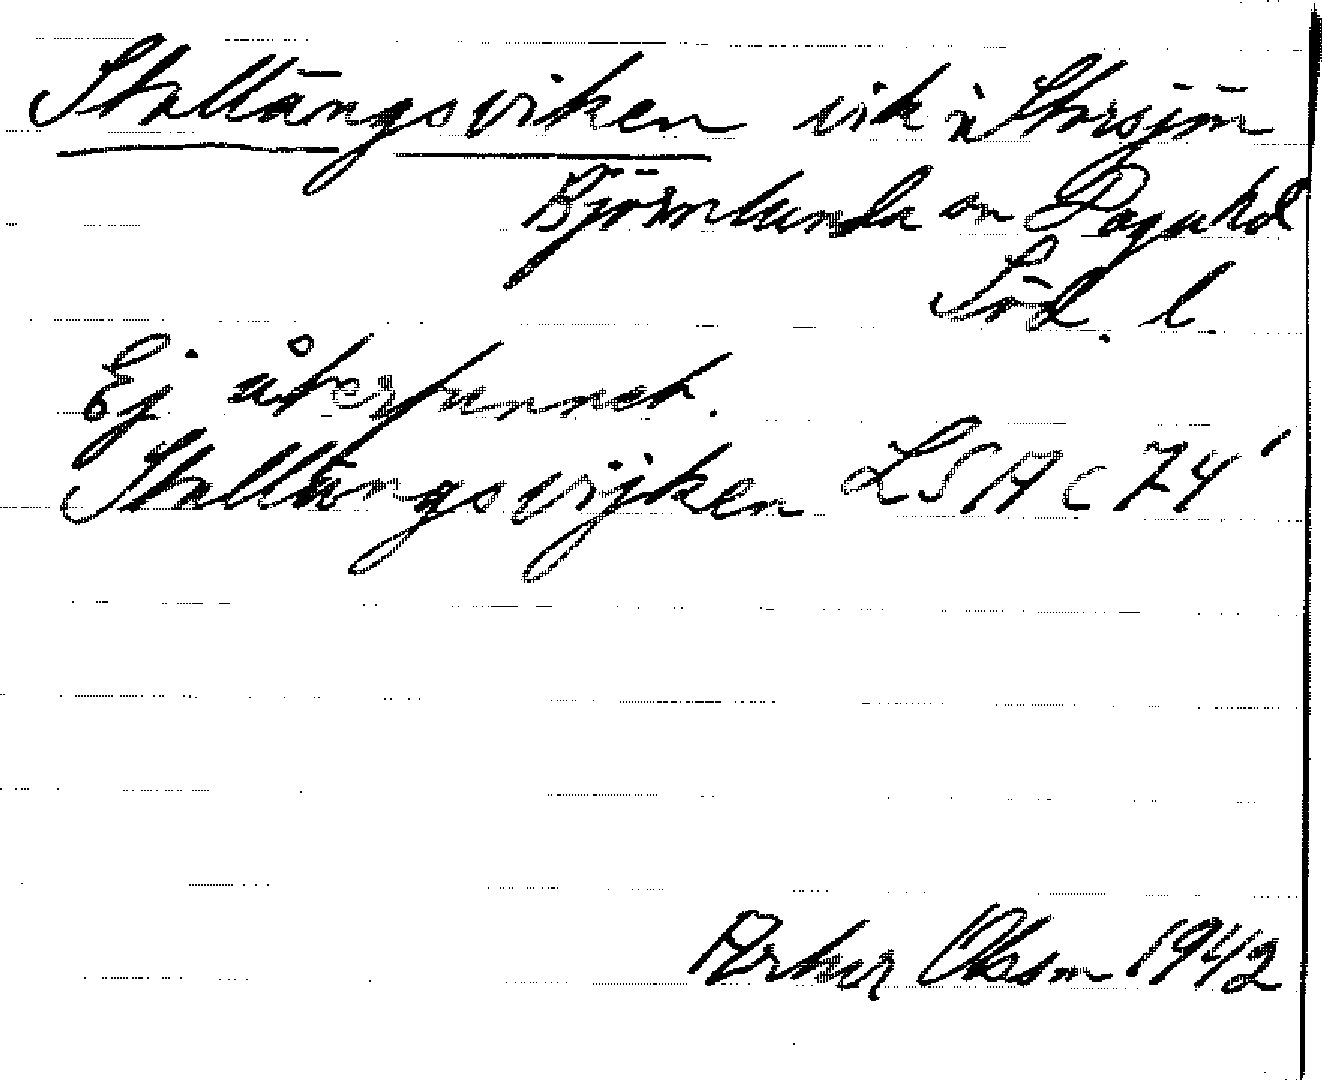 Stallängsviken vik i Storsjön
Björnlunda sn Daga hd
Söd. l.
Ej återfunnet.
Stallängsvijken LSA C 74'
Artur Olssn 1942